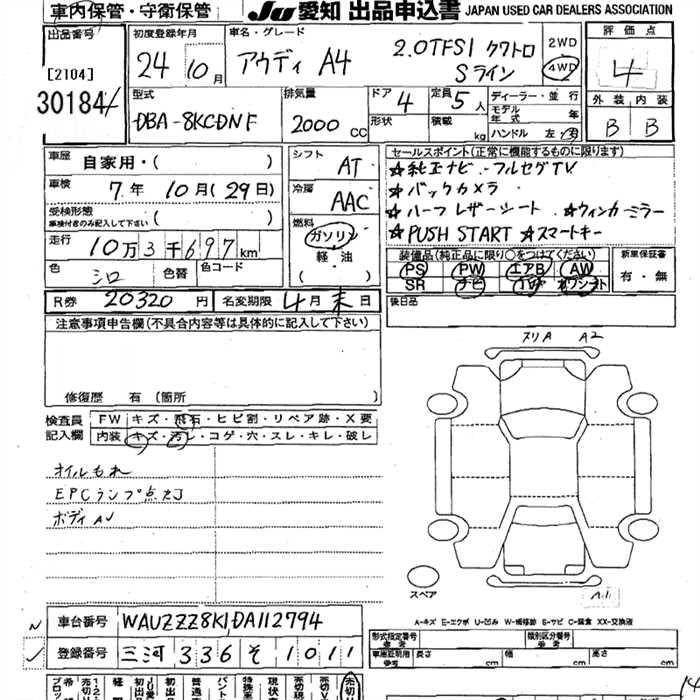 車内保管・守衛保管
JU 愛知 出品申込書 JAPAN USED CAR DEALERS ASSOCIATION
出品番号
[2104]
30184
初度登録年月
24年10月
車名・グレード
アウディ A4
2.0TFSI クワトロ
Sライン
2WD
4WD
評価点
4
外装 内装
B B
型式
DBA-8KCDNF
排気量
2000 CC
ドア 4
形状
定員 5人
積載 kg
ディーラー・並行
モデル年式 年
ハンドル 左・右
車歴 自家用・( )
車検 7年 10月(29日)
受検形態
車検付きのみ記入して下さい ( )
走行 10万3千697km
色 シロ 色替 色コード
シフト AT
冷房 AAC
燃料
ガソリン
軽・油
( )
セールスポイント(正常に機能するものに限ります)
☆純正ナビ・フルセグTV
☆バックカメラ
☆ハーフレザーシート ☆ウィンカーミラー
☆PUSH START ☆スマートキー
装備品(純正品に限り○をつけてください)
PS PW エアB AW
SR ナビ TV カワシート
新車保証書
有・無
後日品
R券 20320円 名変期限 4月末日
注意事項申告欄(不具合内容等は具体的に記入して下さい)
修復歴 有 (箇所
検査員記入欄
FW キズ・飛石・ヒビ割・リペア跡・X要
内装 キズ・汚レ・コゲ・穴・スレ・キレ・破レ
オイルもれ
EPCランプ点灯
ボディAU
スリA A2
スペア
A1
A-キズ E-エクボ U-凹み W-補修跡 S-サビ C-腐食 XX-交換済
車台番号 WAUZZZ8K1DA112794
登録番号 三河 336 そ 1011
形式指定番号 参考
類別区分番号 参考
車庫証明用 参考 長さ cm 幅 cm 高さ cm